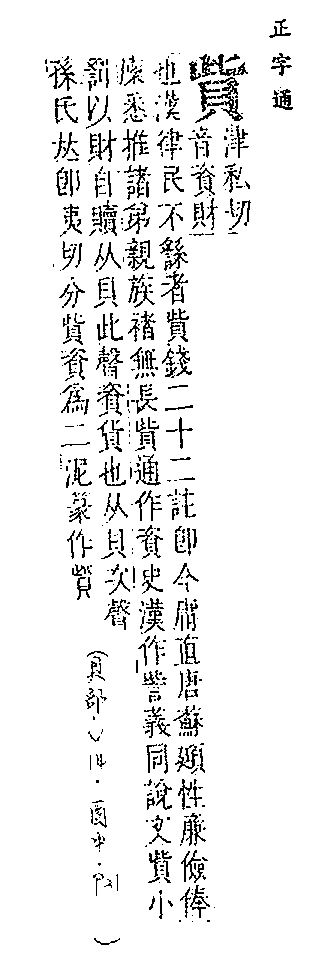 正字通
貲
津私切
音資財
也漢律民不繇者貲錢二十二註卽今庸直唐蘇頲性廉儉俸
廩悉推諸弟親族褚無長貲通作資史漢作訾義同說文貲小
罰以財自贖从貝此聲資貨也从貝次聲
孫氏𠀤卽夷切分貲資爲二泥篆作貲
(貝部·V14·酉中·P21)